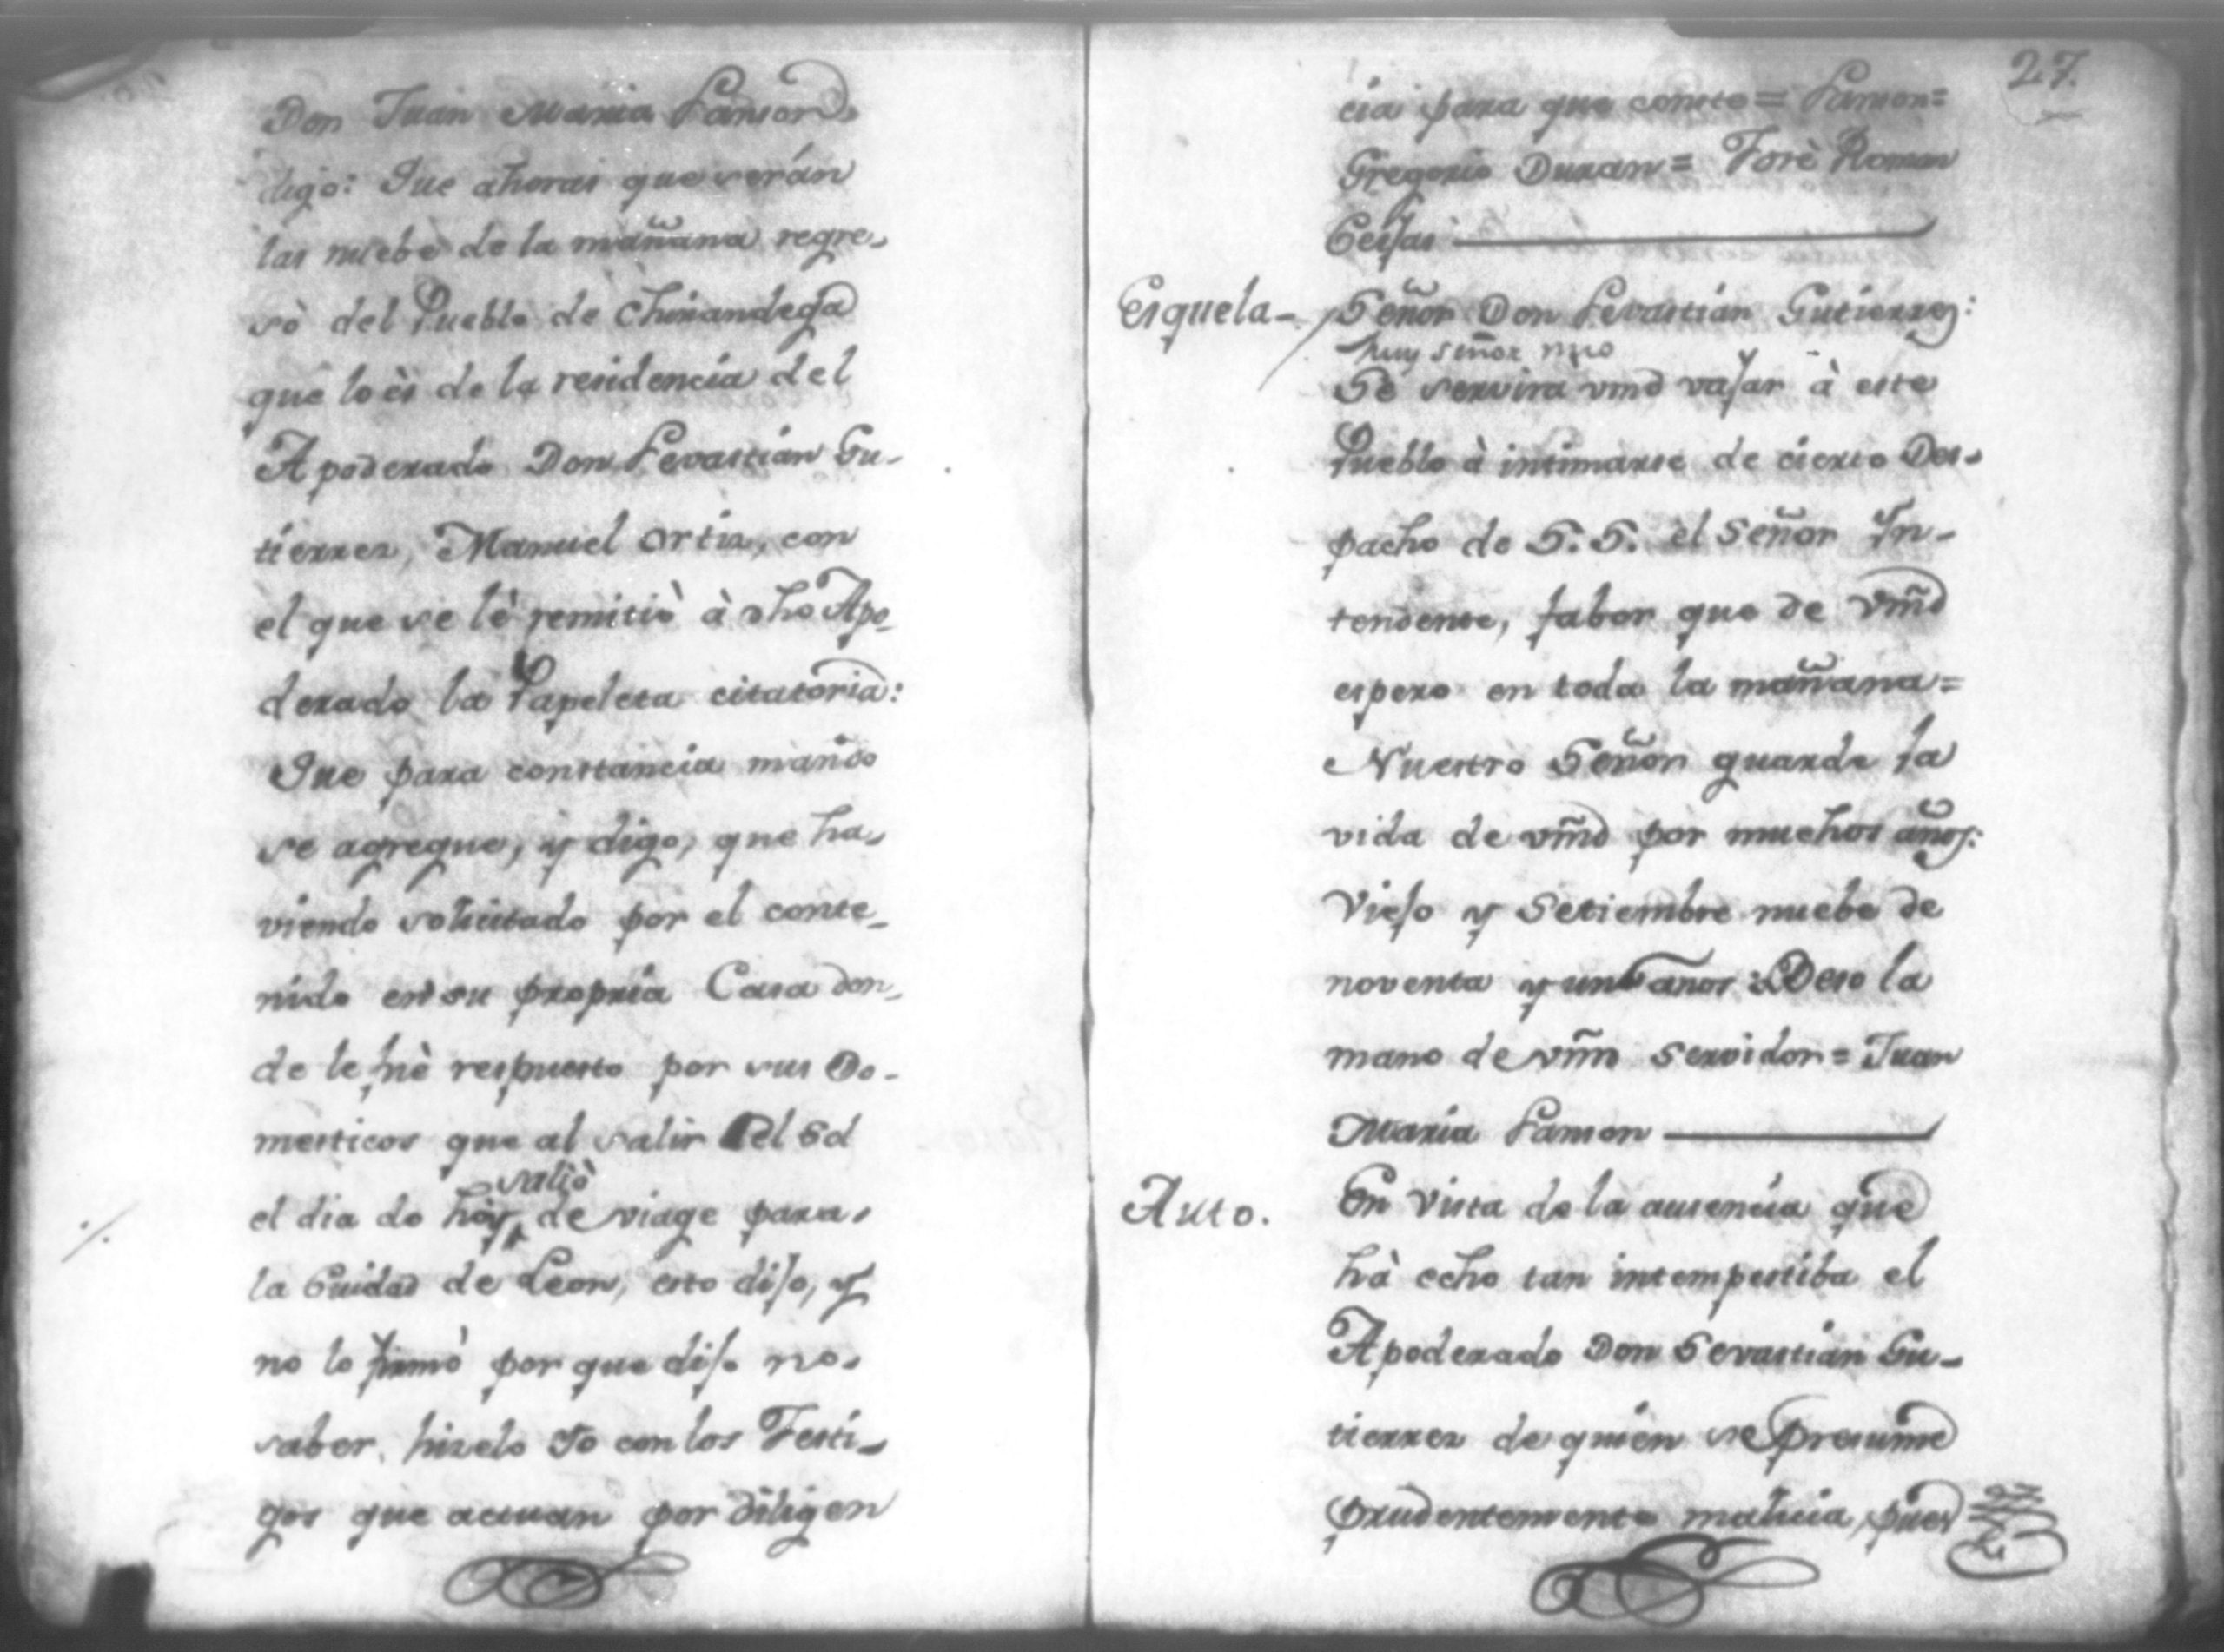 Don Juan Maria Lanson
digo: Que ahoras que serán
las nuebe de la mañana regre-
sò del Pueblo de Chinandega
que lo ès de la residencia del
Apoderado Don Sevastián Gu-
tierrez, Manuel Ortiz, con
el que se lè remitiò à dho Apo-
derado la Papeleta citatoria:
Que para constancia mando
se agregue, y digo, que ha-
viendo solicitado por el conte-
nido en su propria Casa don-
de le fuè respuesto por sus Do-
mesticos que al salir el Sol
saliò
el dia de hoy, de viage para
la Ciudad de Leon, esto dijo, y
no lo firmò por que dijo no
saber, hizelo Yo con los Testi-
gos que actuan por diligen
27.
cia para que conste = Lanson =
Gregorio Duran = Josè Roman
Ceijas
Esquela - Señor Don Sevastián Gutierrez:
Muy señor mio
Se servira vmd vajar à este
Pueblo à intimarse de cierto Des-
pacho de S.S. el Señor Yn-
tendente, fabor que de Vmd
espero en toda la mañana =
Nuestro Señor guarde la
vida de vmd por muchos años:
Viejo y Setiembre nuebe de
noventa y un años: Beso la
mano de vmd servidor = Juan
Maria Lanson
Auto. En vista de la ausencia que
hà echo tan intempestiba el
Apoderado Don Sevastián Gu-
tierrez de quien se presume
prudentemente malicia, pues